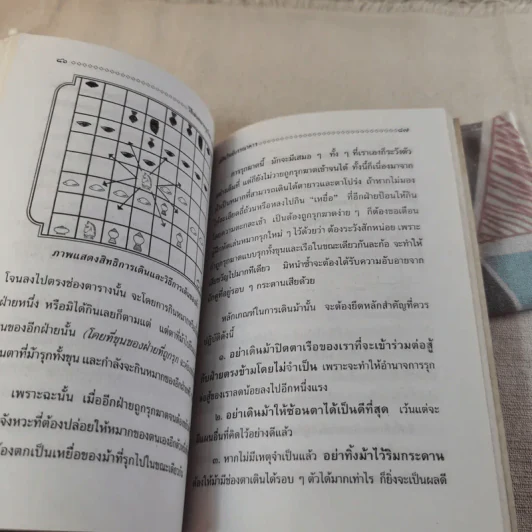 ๘๖
ภาพแสดงสิทธิการเดินและวิธีการเดินของ
โจนลงไปตรงช่องตารางนั้น จะโดยการกินหมาก
ฝ่ายหนึ่ง หรือมิได้กินเลยก็ตามแต่ แต่ตาที่ม้า
นของอีกฝ่ายนั้น (โดยที่ขุนของฝ่ายที่ถูกรุก
นตาที่ม้ารุกทั้งขุน และกำลังจะกินหมาก
เพราะฉะนั้น เมื่ออีกฝ่ายถูกรุกฆาต
จังหวะที่ต้องปล่อยให้หมากของตนเอง
ต้องตกเป็นเหยื่อของม้าที่รุกไปในขณะเดียวกัน
๘๗
การรุกฆาตนี้ มักจะมีเสมอ ๆ ทั้ง ๆ ที่เราเองก็ระวังตัว
เต็มที่ แต่ก็ยังไม่วายถูกรุกฆาตเข้าจนได้ ทั้งนี้ก็เนื่องมาจาก
เป็นหมากที่สามารถเดินได้ตายาวและตาโปร่ง ถ้าหากไม่มอง
ยี้ยวันหรือหลงไปกิน "เหยื่อ" ที่อีกฝ่ายป้อนให้กิน
ความตะกละเข้า เป็นต้องถูกรุกฆาตง่าย ๆ ก็ต้องขอเตือน
เล่นหมากรุกใหม่ ๆ ไว้ด้วยว่า ต้องระวังสักหน่อย เพราะ
รุกฆาตแบบรุกทั้งขุนและเรือในขณะเดียวกันละก้อ จะทำให้
ไปมากทีเดียว มิหนำซ้ำจะต้องได้รับความอับอายจาก
ที่อยู่รอบ ๆ กระดานเสียด้วย
หลักเกณฑ์ในการเดินม้านั้น จะต้องยึดหลักสำคัญที่ควร
ปฏิบัติดังนี้
๑. อย่าเดินม้าปิดตาเรือของเราที่จะเข้าร่วมต่อสู้
กับฝ่ายตรงข้ามโดยไม่จำเป็น เพราะจะทำให้อำนาจการรุก
ต่อสู้ของเราลดน้อยลงไปอีกหนึ่งแรง
๒. อย่าเดินม้าให้ซ้อนตาได้เป็นดีที่สุด เว้นแต่จะ
มีแผนอื่นที่คิดไว้อย่างดีแล้ว
๓. หากไม่มีเหตุจำเป็นแล้ว อย่าทิ้งม้าไว้ริมกระดาน
ต้องให้ม้ามีช่องตาเดินได้รอบ ๆ ตัวได้มากเท่าไร ก็ยิ่งจะเป็นผลดี